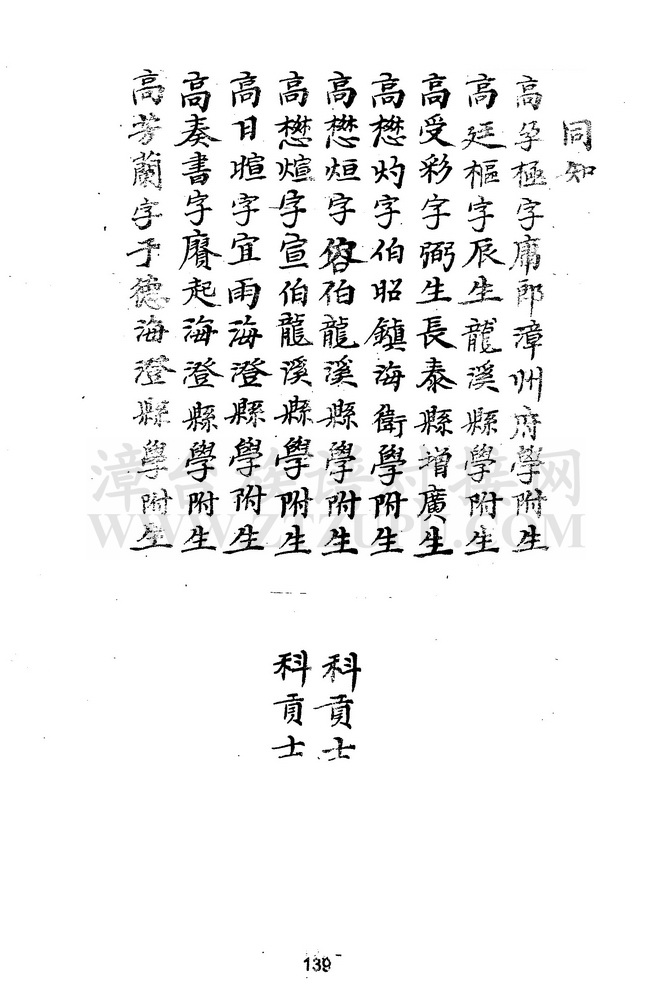 同知
高孕極字庸郎漳州府學附生
高廷樞字辰生龍溪縣學附生
高受彩字弼生長泰縣增廣生
高懋灼字伯昭鎮海衛學附生
高懋烜字容伯龍溪縣學附生
科貢士
高懋煊字宣伯龍溪縣學附生
科貢士
高日暄字宜雨海澄縣學附生
高奏書字賡起海澄縣學附生
高芳蘭字予德海澄縣學附生
漳台族譜對接網
WWW.ZTZUPU.COM
139